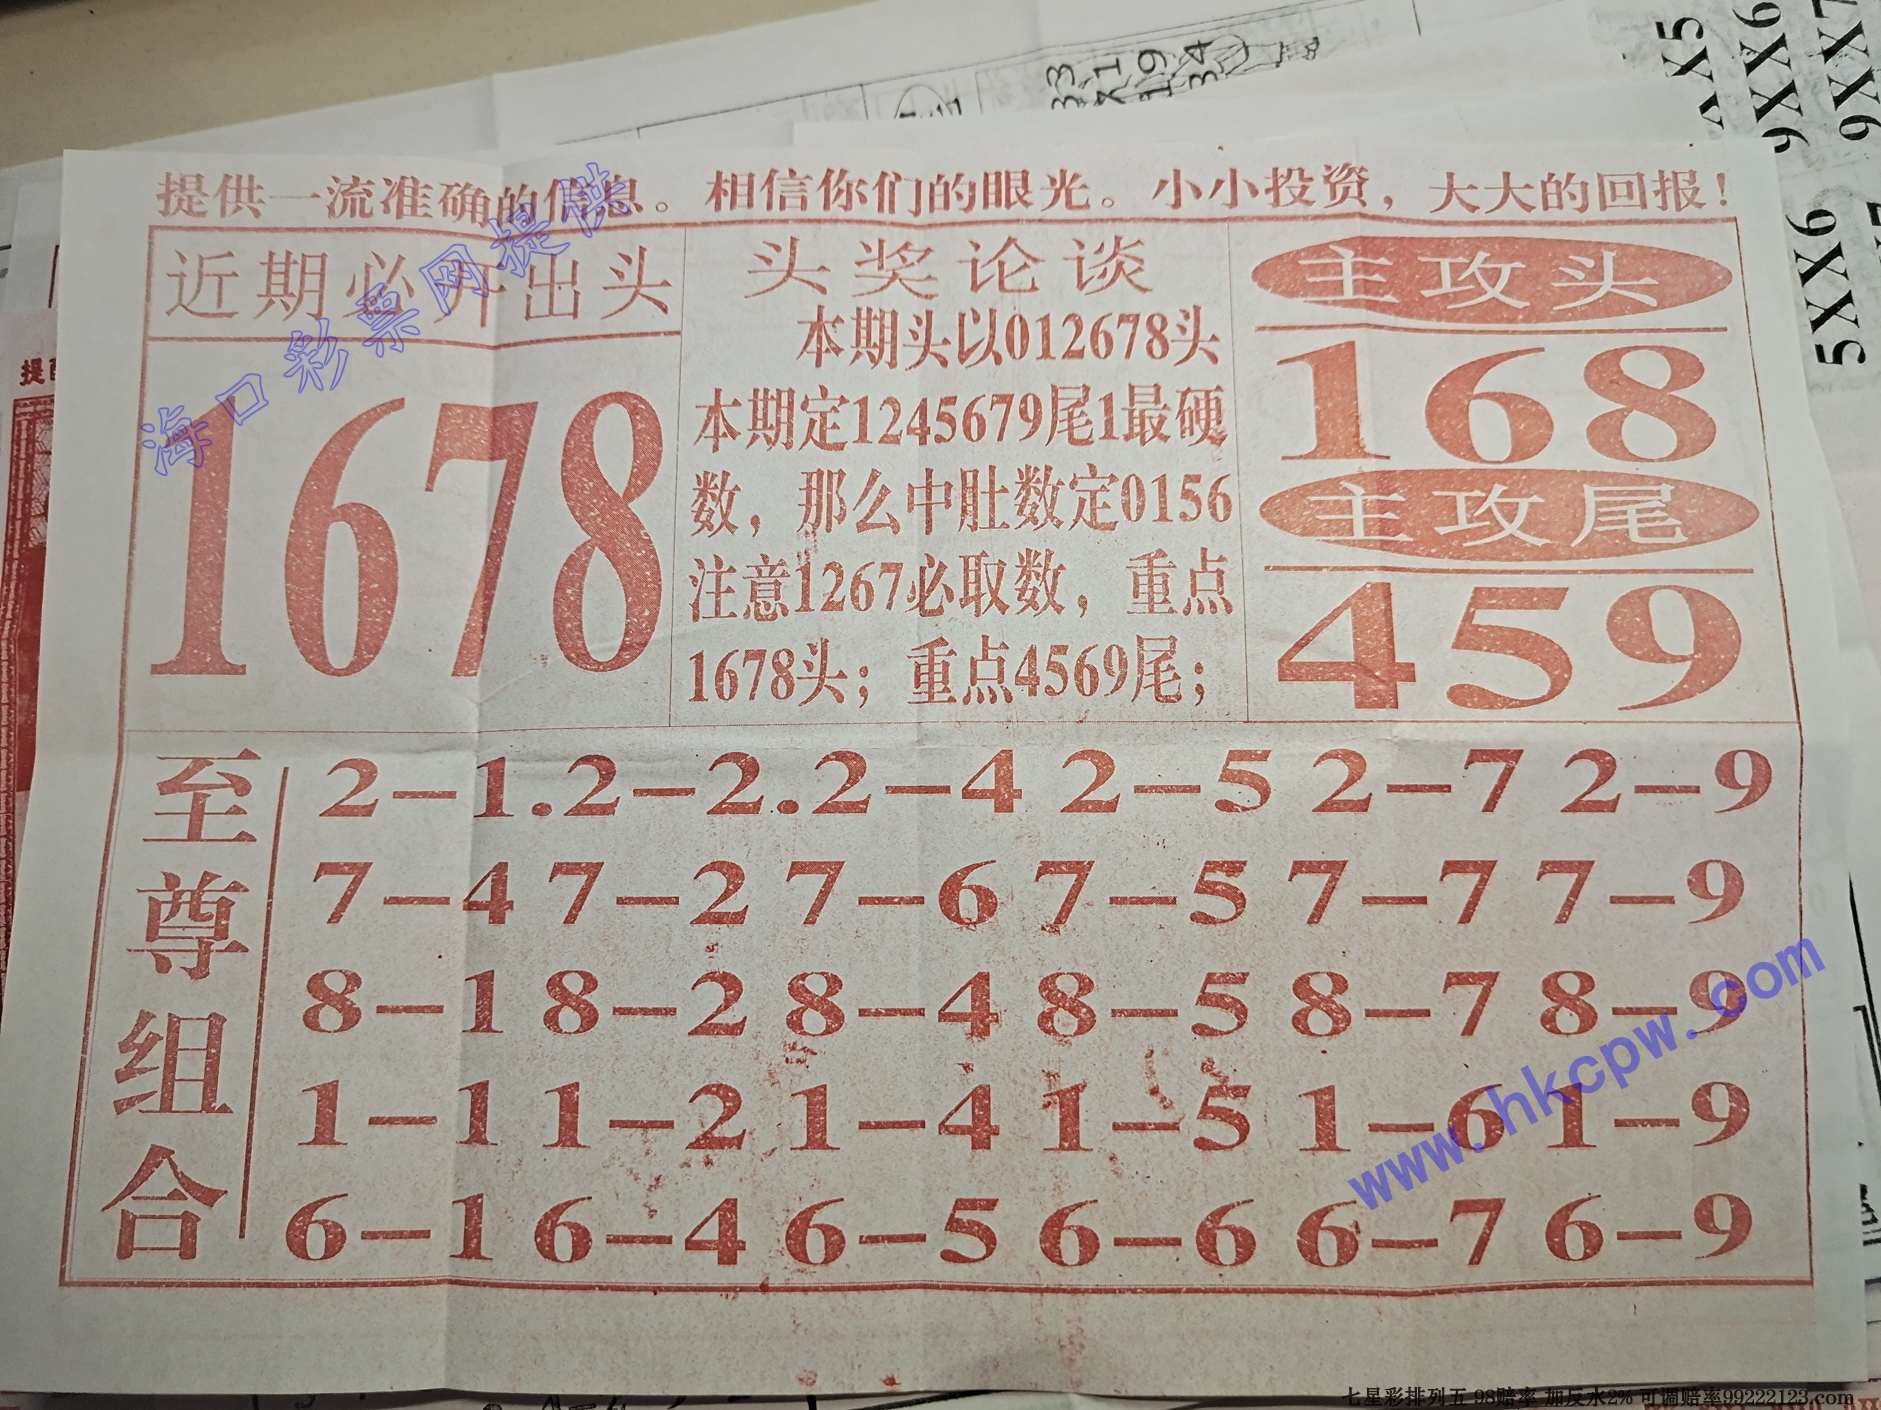 33
X1
19
34
XX5
9XX6
9XX7
5XX6
提供一流准确的信息。相信你们的眼光。小小投资，大大的回报！
近期必开出头
1678
头奖论谈
本期头以012678头
本期定1245679尾1最硬
数，那么中肚数定0156
注意1267必取数，重点
1678头；重点4569尾；
主攻头
168
主攻尾
459
至尊组合
2-1.2-2.2-4 2-5 2-7 2-9
7-4 7-2 7-6 7-5 7-7 7-9
8-1 8-2 8-4 8-5 8-7 8-9
1-1 1-2 1-4 1-5 1-6 1-9
6-1 6-4 6-5 6-6 6-7 6-9
海口彩票网提供
www.hkcpw.com
七星彩排列五 98赔率 加反水2% 可调赔率99222123.com